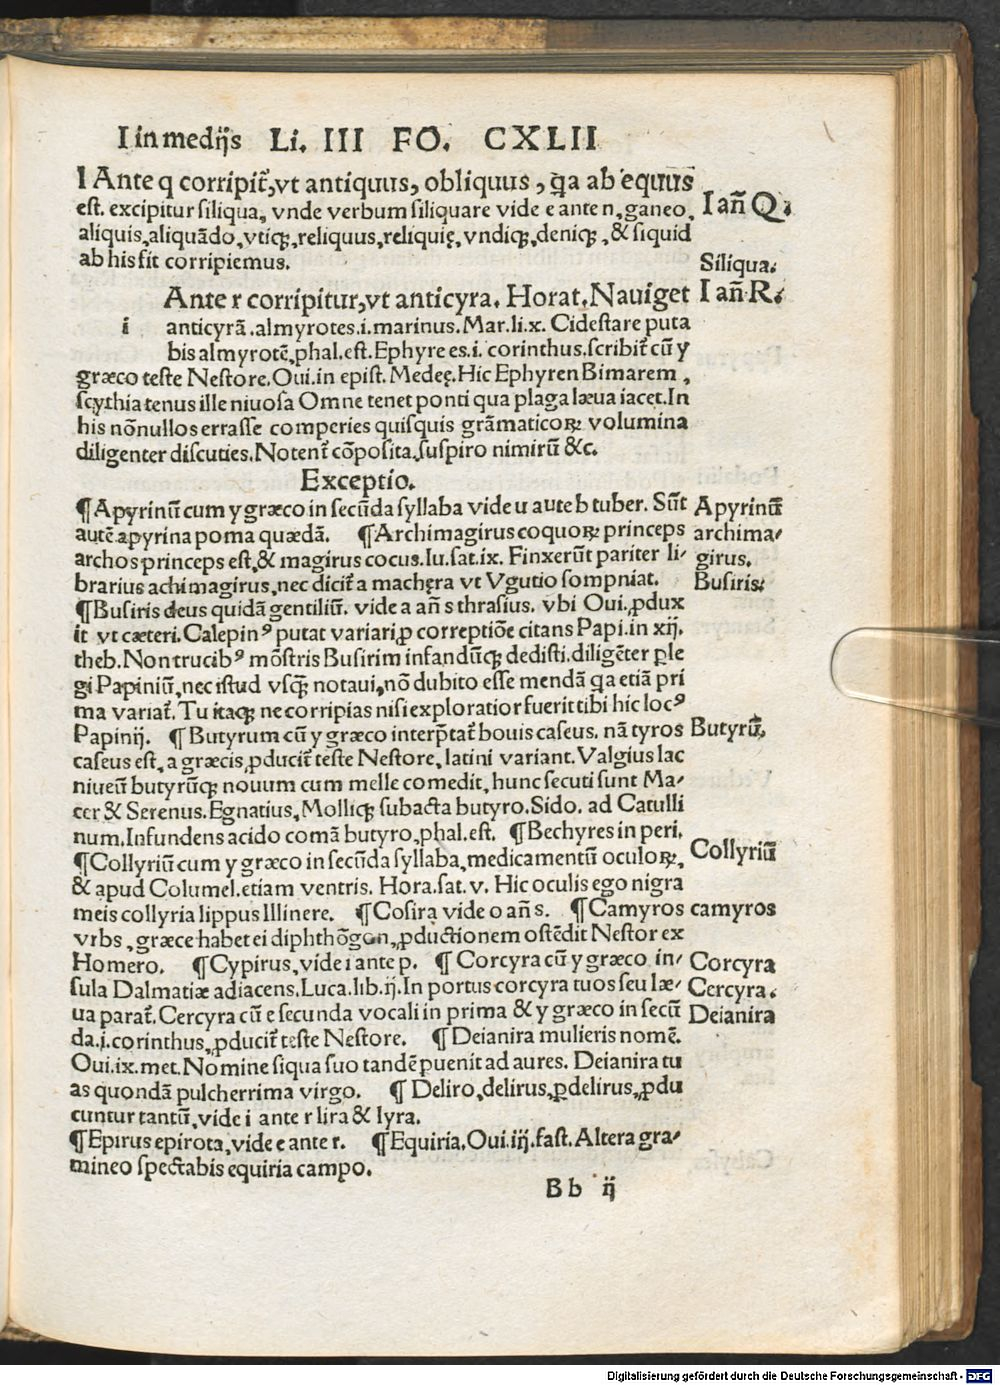 I in medijs Li. III FO. CXLII
I Ante q corripit̃, vt antiquus, obliquus, q̃a ab equus
est. excipitur siliqua, vnde verbum siliquare vide e ante n, ganeo,
Iañ Q.
aliquis, aliquãdo, vtiqꝫ, reliquus, reliquię, vndiqꝫ, deniqꝫ, & siquid
ab his fit corripiemus.
Siliqua.
Ante r corripitur, vt anticyra. Horat. Nauiget
Iañ R.
i anticyrã. almyrotes .i. marinus. Mar. li. x. Cidestare puta
bis almyrotẽ, phal. est. Ephyre es .i. corinthus. scribit̃ cũ y
græco teste Nestore. Oui. in epist. Medeę. Hic Ephyren Bimarem,
scythia tenus ille niuosa Omne tenet ponti qua plaga læua iacet. In
his nõnullos errasse comperies quisquis grãmaticoꝝ volumina
diligenter discuties. Notent̃ cõposita. suspiro nimirũ &c.
Exceptio.
¶ Apyrinũ cum y græco in secũda syllaba vide u aute b tuber. Sũt
Apyrinũ
autẽ apyrina poma quædã. ¶ Archimagirus coquoꝝ princeps
archima/
archos princeps est, & magirus cocus. Iu. sat. ix. Finxerũt pariter li/
girus.
brarius achimagirus, nec dicit̃ a machęra vt Vgutio sompniat.
Busiris.
¶ Busiris deus quidã gentiliũ. vide a añ s thrasius. vbi Oui. ꝓdux
it vt cæteri. Calepinꝰ putat variari ꝓ correptiõe citans Papi. in xij.
theb. Non trucibꝰ mõstris Busirim infandũqꝫ dedisti. diligẽter ꝑle
gi Papiniũ, nec istud vsqꝫ̃ notaui, nõ dubito esse mendã q̃a etiã pri
ma variat̃. Tu itaqꝫ ne corripias nisi exploratior fuerit tibi hic locꝰ
Papinij. ¶ Butyrum cũ y græco interp̃tat̃ bouis caseus. nã tyros
Butyrũ,
caseus est, a græcis, ꝓducit̃ teste Nestore, latini variant. Valgius lac
niueũ butyrũqꝫ nouum cum melle comedit, hunc secuti sunt Ma/
cer & Serenus. Egnatius, Molliqꝫ subacta butyro. Sido. ad Catulli
num. Infundens acido comã butyro, phal. est. ¶ Bechyres in peri.
¶ Collyriũ cum y græco in secũda syllaba, medicamentũ oculoꝝ,
Collyriũ
& apud Columel. etiam ventris. Hora. sat. v. Hic oculis ego nigra
meis collyria lippus Illinere. ¶ Cosira vide o añ s. ¶ Camyros
camyros
vrbs, græce habet ei diphthõgon, ꝓductionem ostẽdit Nestor ex
Homero. ¶ Cypirus, vide i ante p. ¶ Corcyra cũ y græco in/
Corcyra
sula Dalmatiæ adiacens. Luca. lib. ij. In portus corcyra tuos seu læ/
Cercyra.
ua parat̃. Cercyra cũ e secunda vocali in prima & y græco in secũ
Deianira
da .i. corinthus, ꝓducit̃ teste Nestore. ¶ Deianira mulieris nomẽ.
Oui. ix. met. Nomine siqua suo tandẽ puenit ad aures. Deianira tu
as quondã pulcherrima virgo. ¶ Deliro, delirus, ꝑdelirus, ꝓdu
cuntur tantũ, vide i ante r lira & lyra.
¶ Epirus epirota, vide e ante r. ¶ Equiria, Oui. iij. fast. Altera gra/
mineo spectabis equiria campo.
Bb ij
Digitalisierung gefördert durch die Deutsche Forschungsgemeinschaft - DFG